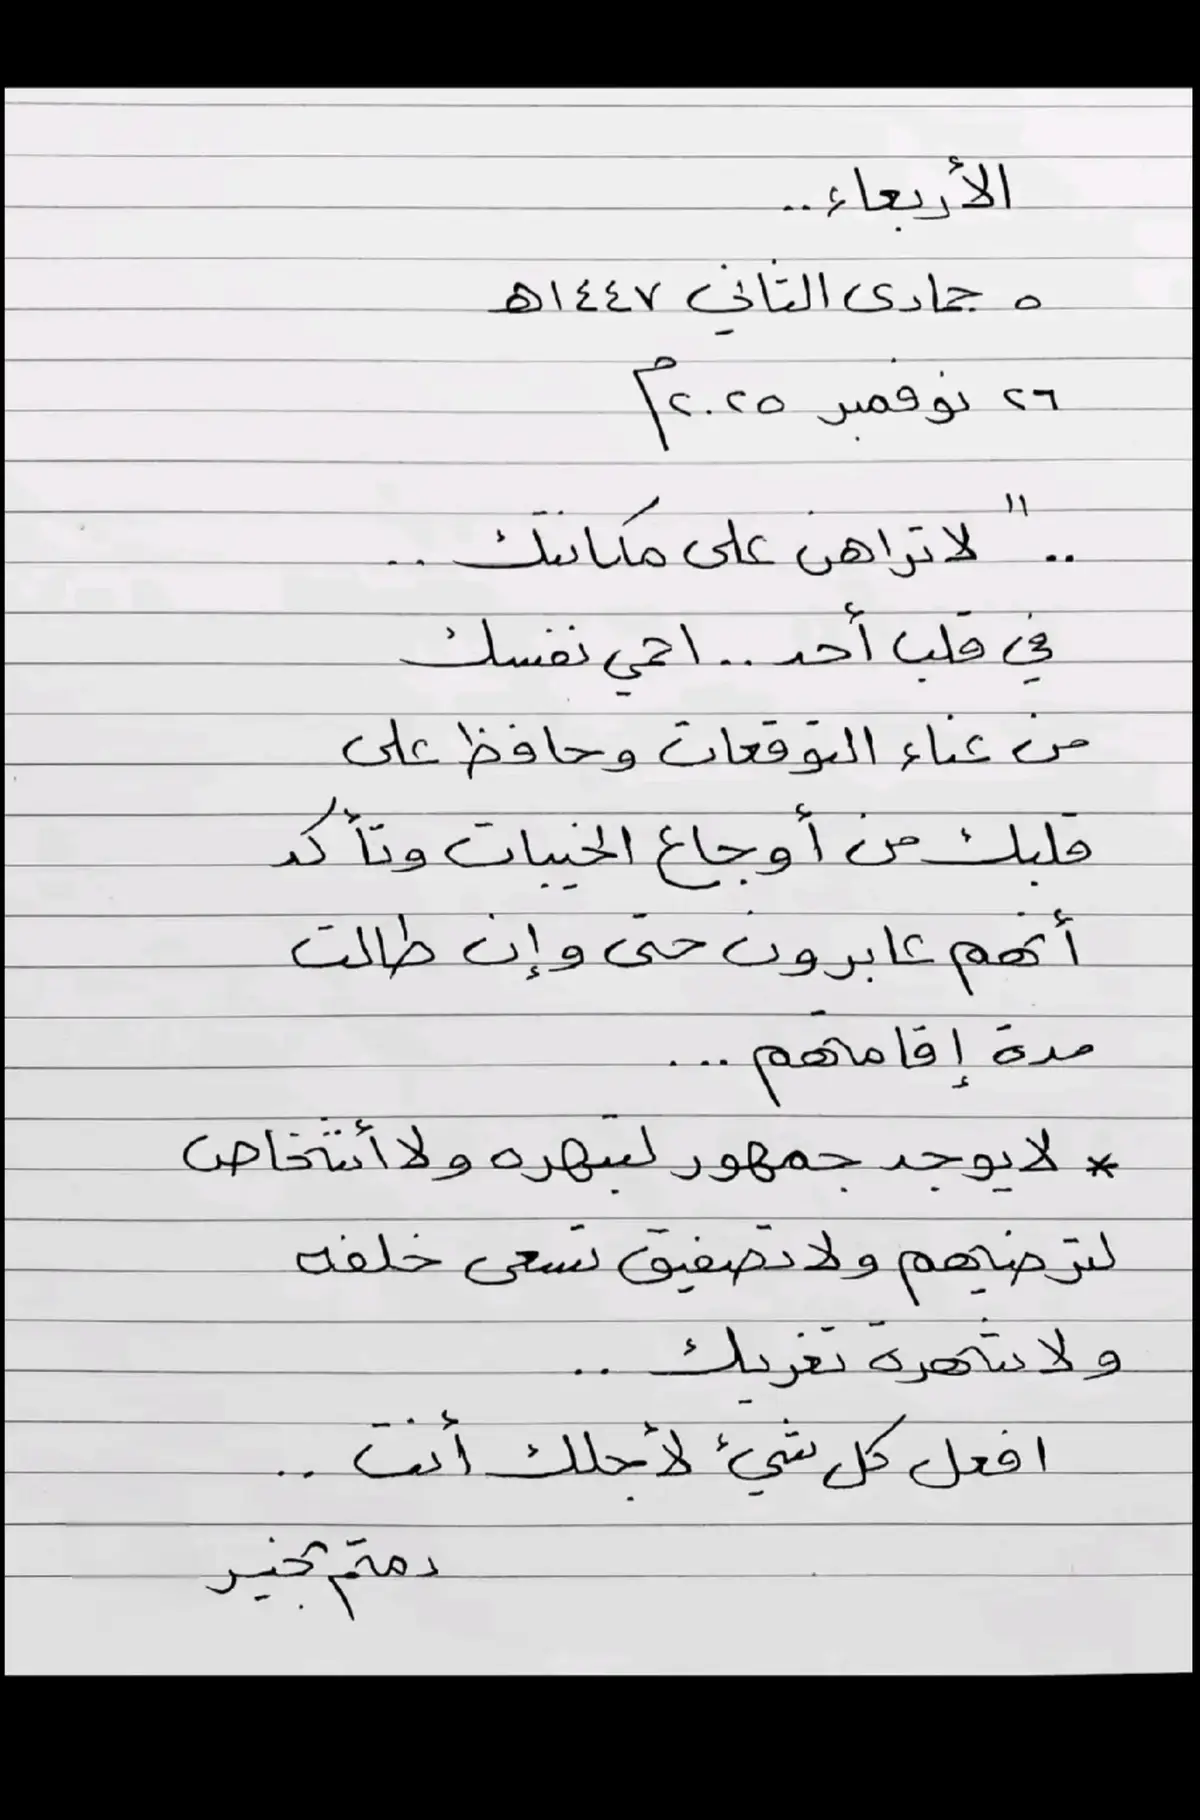 الأربعاء..
٥ جمادى الثاني ١٤٤٧هـ
٢٦ نوفمبر ٢٠٢٥م
.. " لا تراهن على مكانتك ..
في قلب أحد .. احمي نفسك
من عناء التوقعات وحافظ على
قلبك من أوجاع الخيبات وتأكد
أنهم عابرون حتى وإن طالت
مدة إقامتهم ...
* لا يوجد جمهور لتبهره ولا أشخاص
لترضيهم ولا تصفيق تسعى خلفه
ولا شهرة تغريك ..
افعل كل شيء لأجلك أنت ..
دمتم بخير